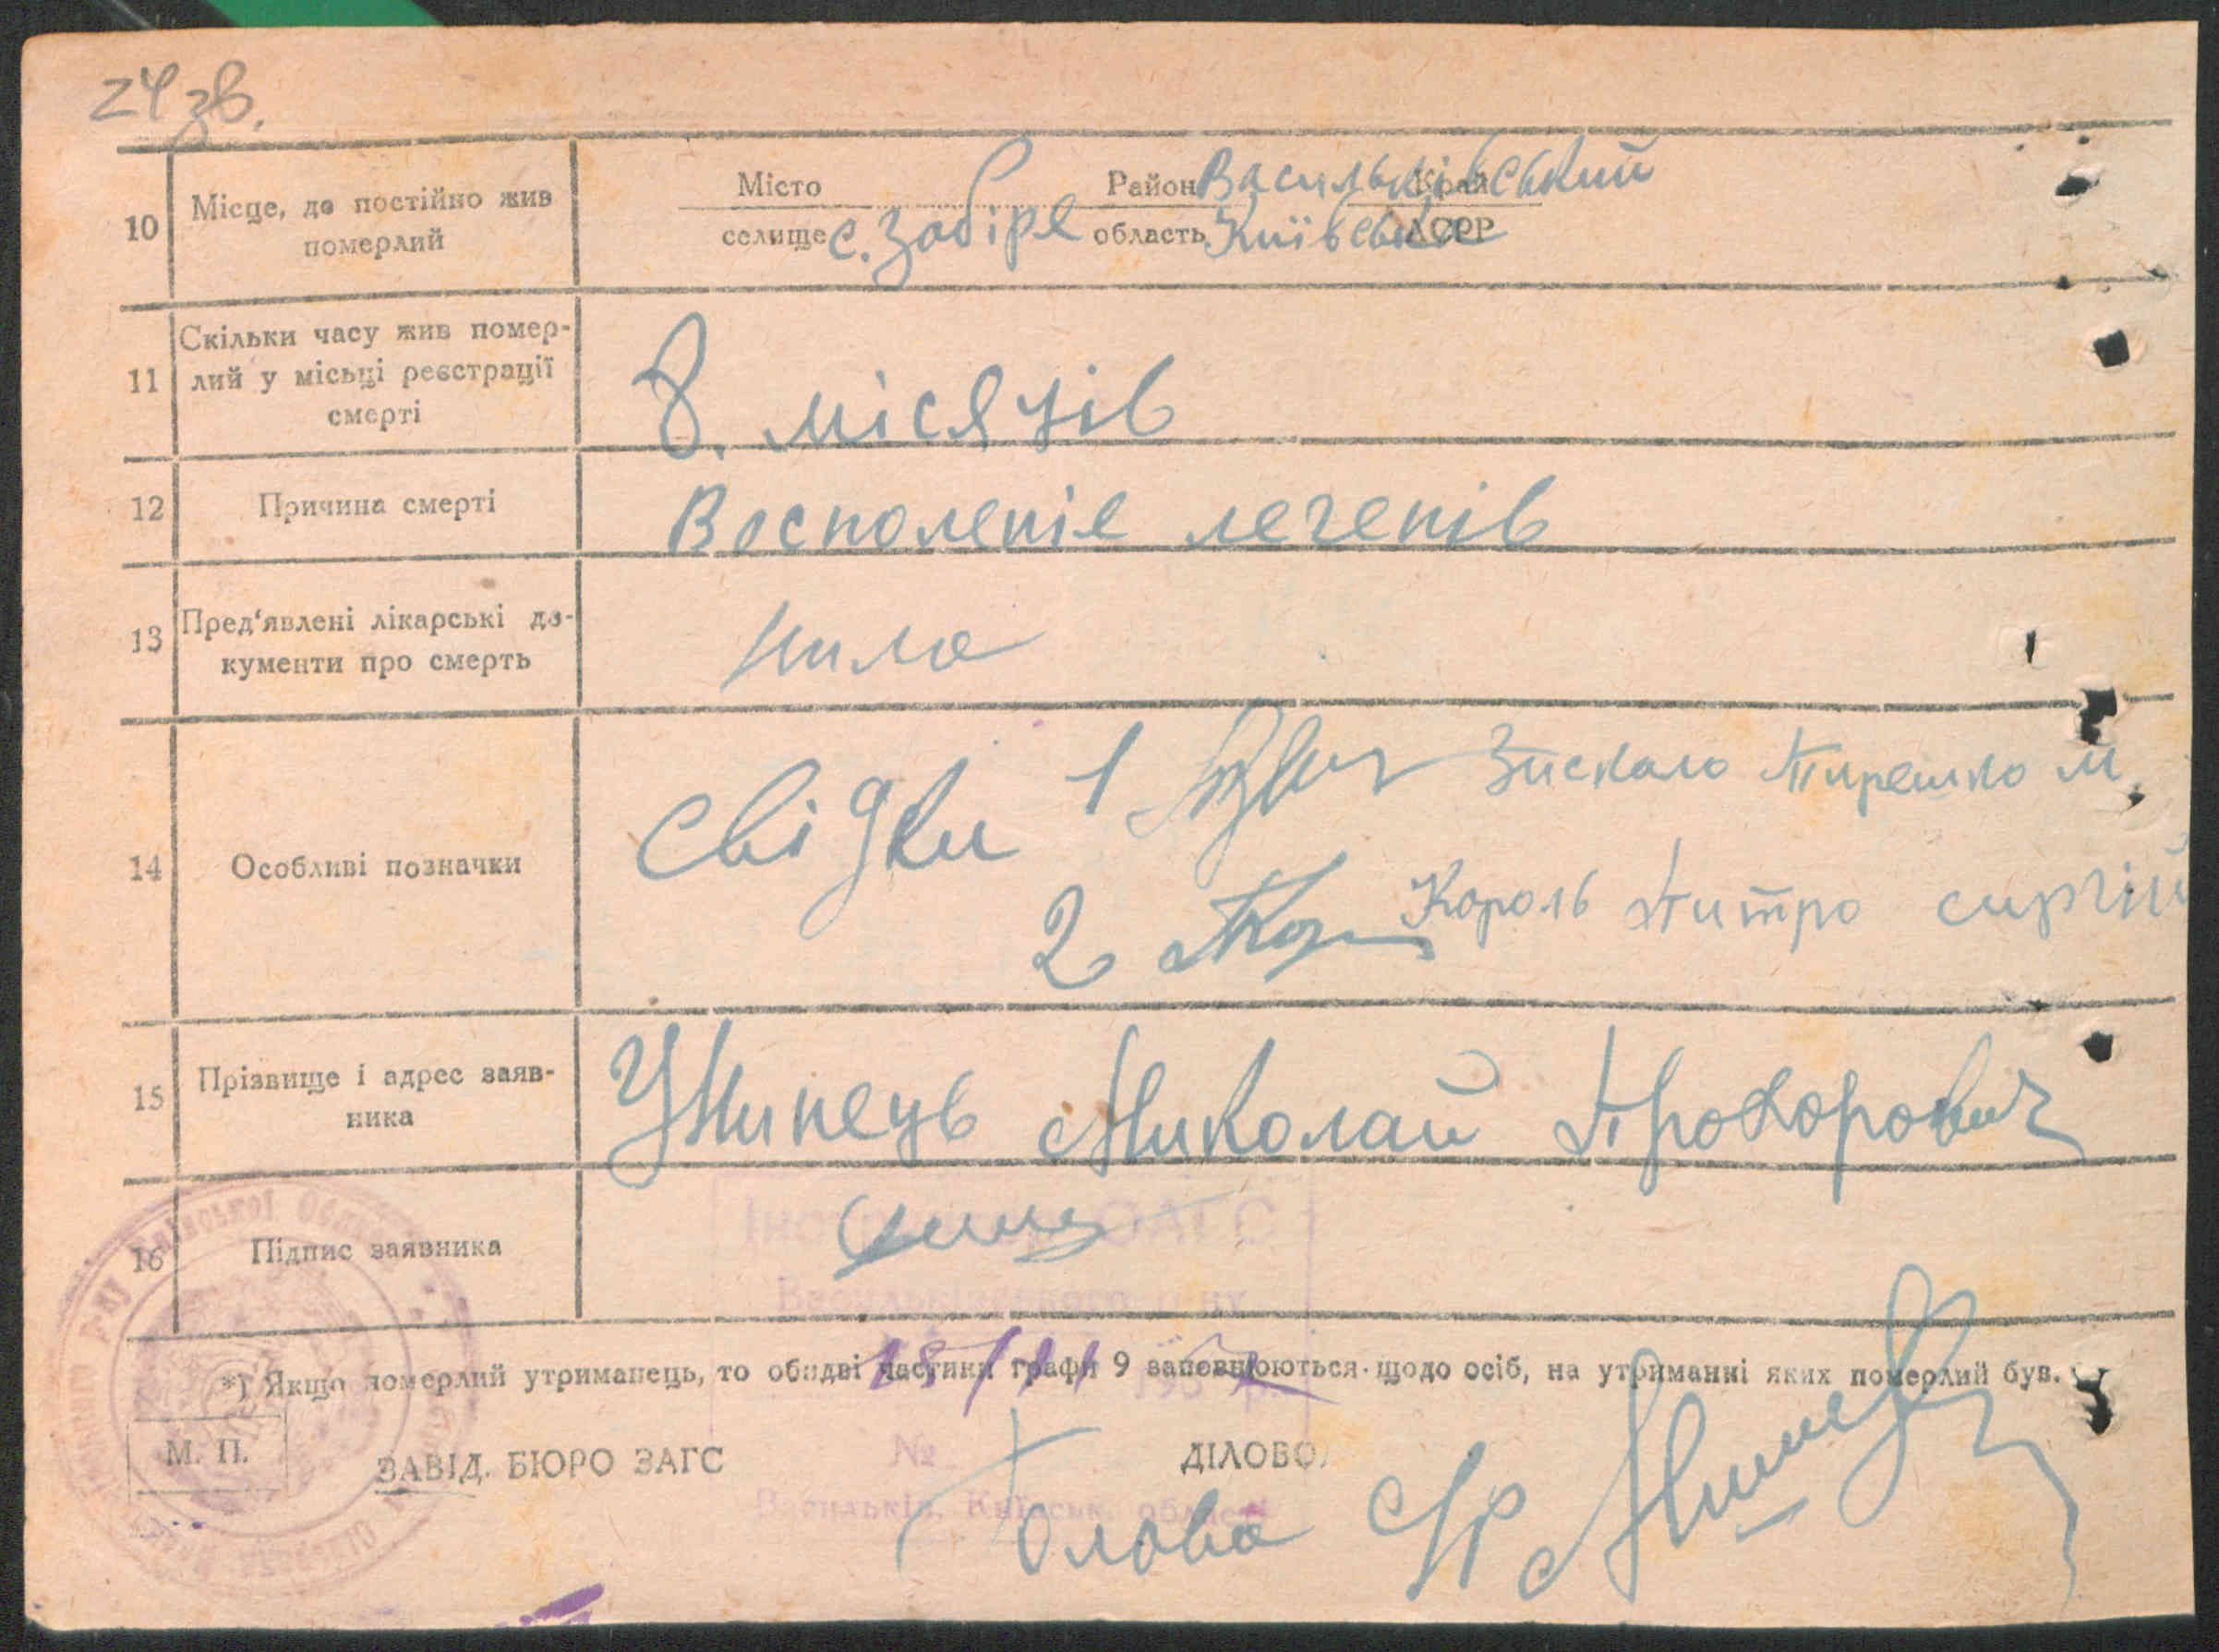 24 зв.
10 Місце, де постійно жив померлий
Місто Район Васильківський Край
селище с. Забірє область Київська АСРР
11 Скільки часу жив помер-
лий у місьці реєстрації
смерті
8. місяців
12 Причина смерті Восполеніє легенів
13 Пред'явлені лікарські до-
кументи про смерть
нима
14 Особливі позначки
свідки 1 Зискало М.
2 Король Дитро
15 Прізвище і адрес заяв-
ника
Ужинець Миколай Прохорович
16 Підпис заявника
*) Якщо померлий утриманець, то обидві частини графи 9 заповнюються щодо осіб, на утриманні яких померлий був.
М. П. ЗАВІД. БЮРО ЗАГС № ДІЛОВОД
Васильків, Київськ. області
Голова с/р